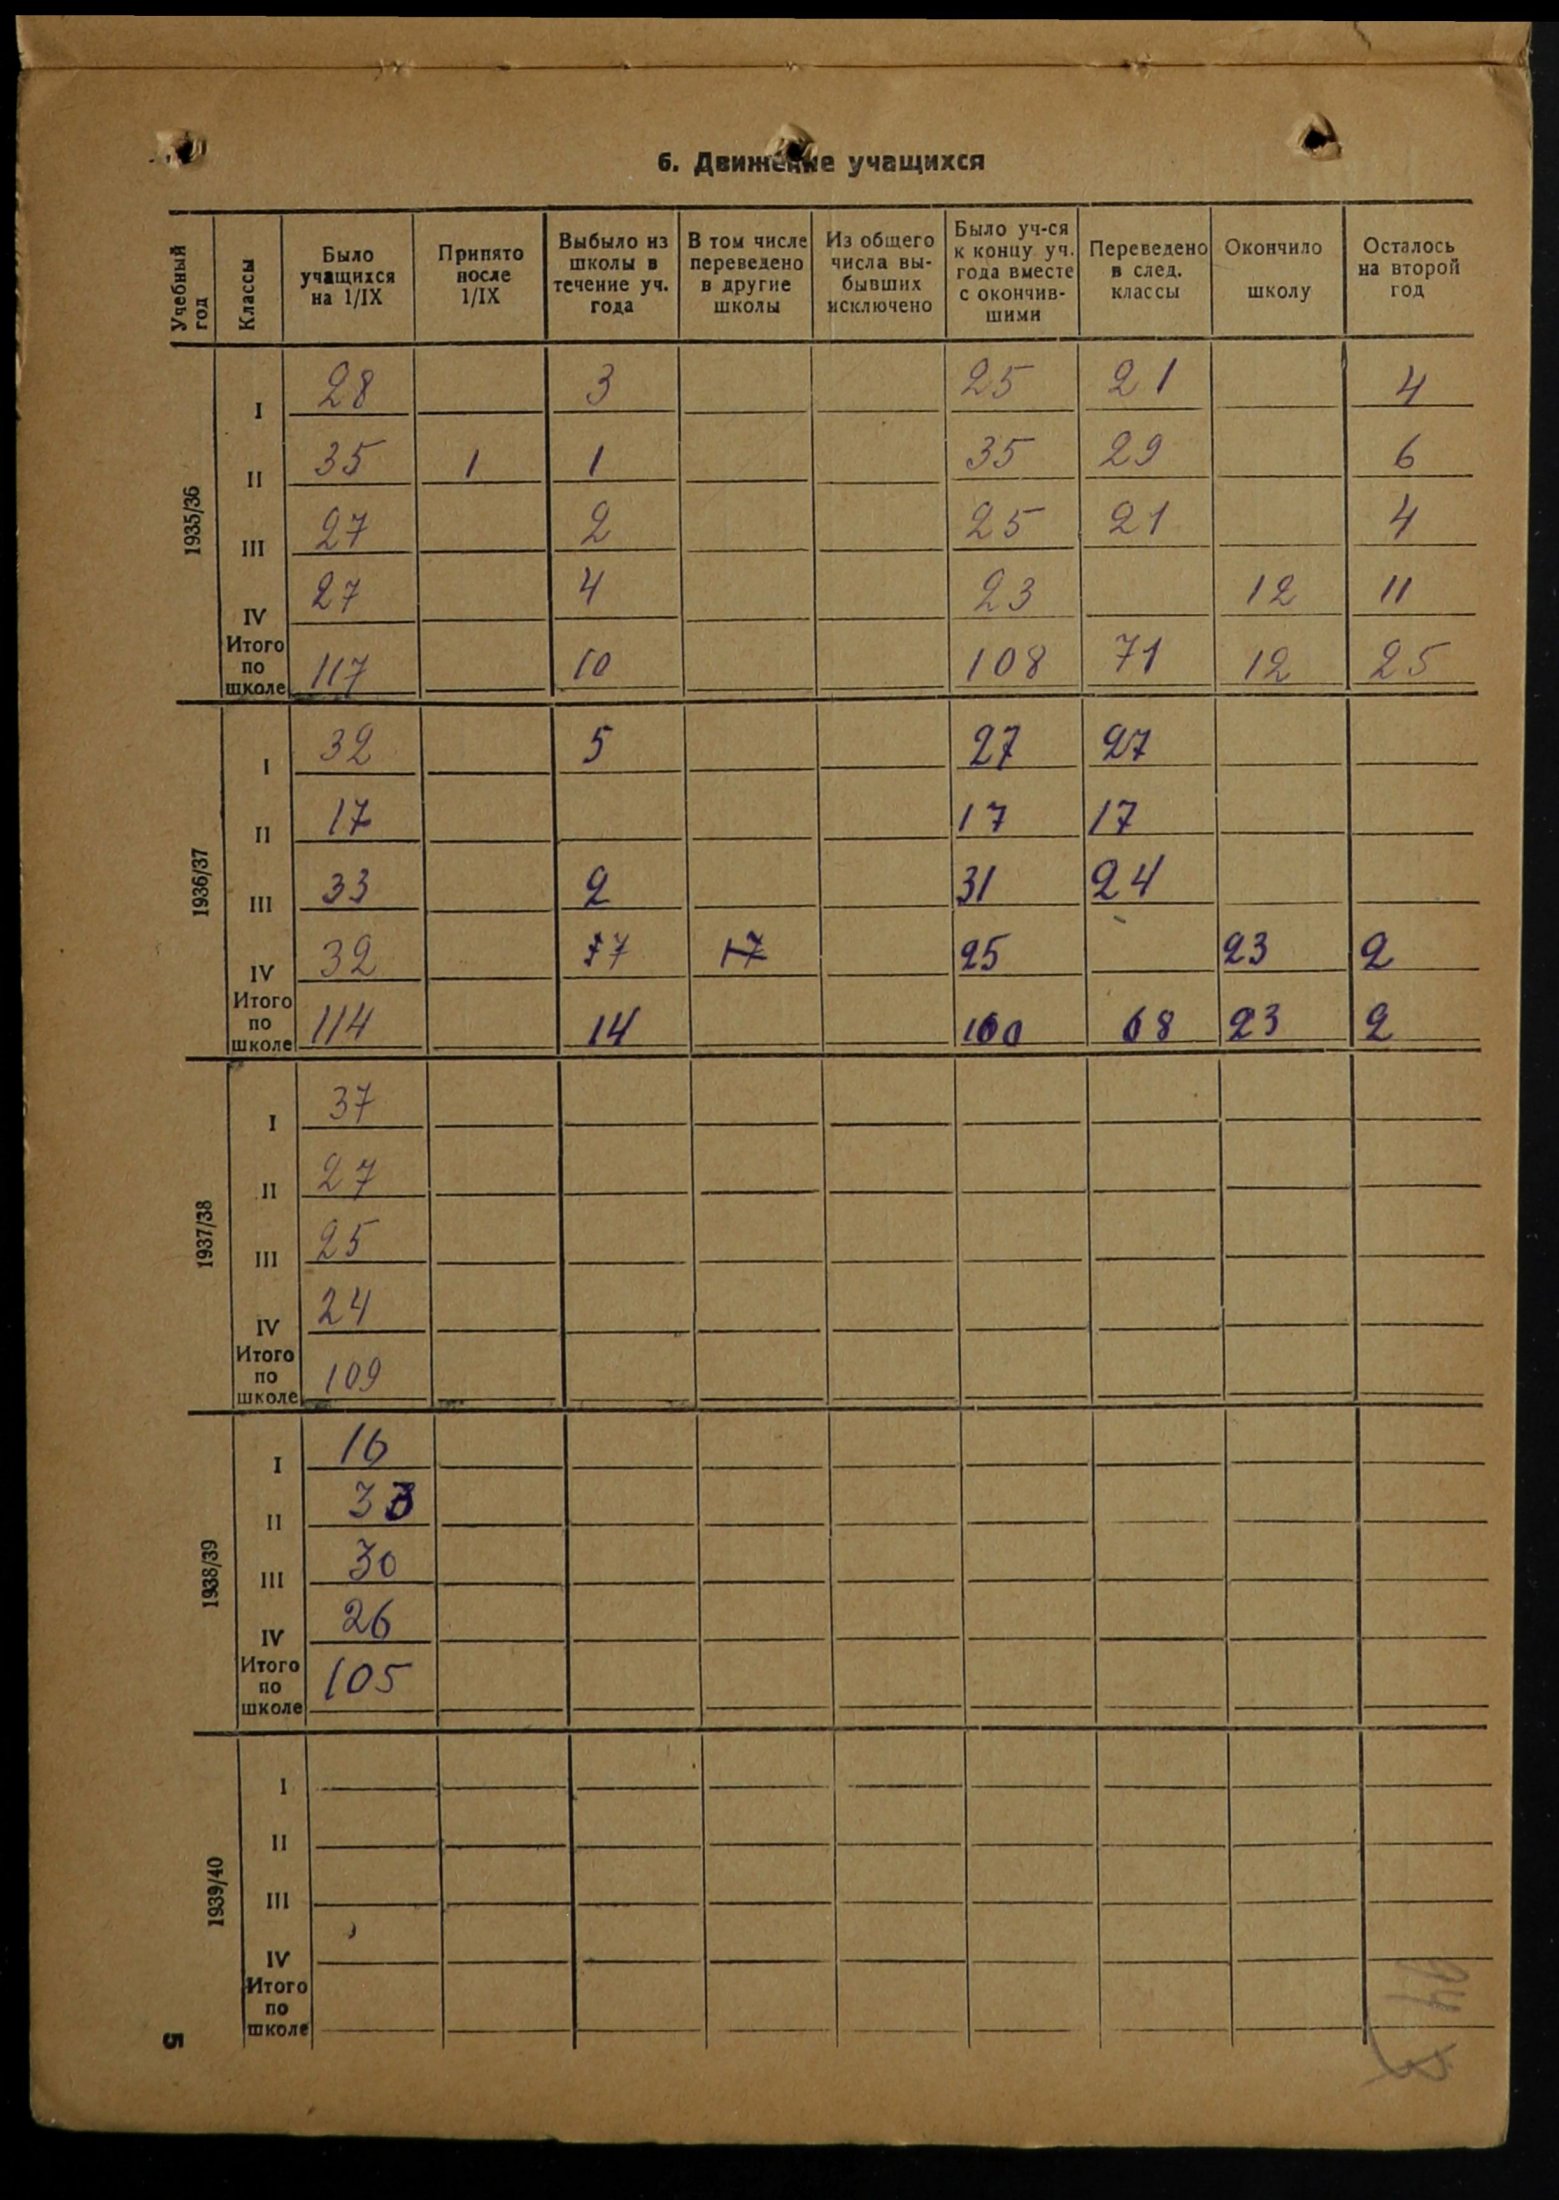 6. Движение учащихся
Учебный год | Классы | Было учащихся на 1/IX | Принято после 1/IX | Выбыло из школы в течение уч. года | В том числе переведено в другие школы | Из общего числа вы-бывших исключено | Было уч-ся к концу уч. года вместе с окончив-шими | Переведено в след. классы | Окончило школу | Осталось на второй год
1935/36
I 28 3 25 21 4
II 35 1 1 35 29 6
III 27 2 25 21 4
IV 27 4 23 12 11
Итого по школе 117 10 108 71 12 25
1936/37
I 32 5 27 27
II 17 17 17
III 33 2 31 24
IV 32 7 17 25 23 2
Итого по школе 114 14 100 68 23 2
1937/38
I 37
II 27
III 25
IV 24
Итого по школе 109
1938/39
I 16
II 33
III 30
IV 26
Итого по школе 105
1939/40
I
II
III
IV
Итого по школе
5